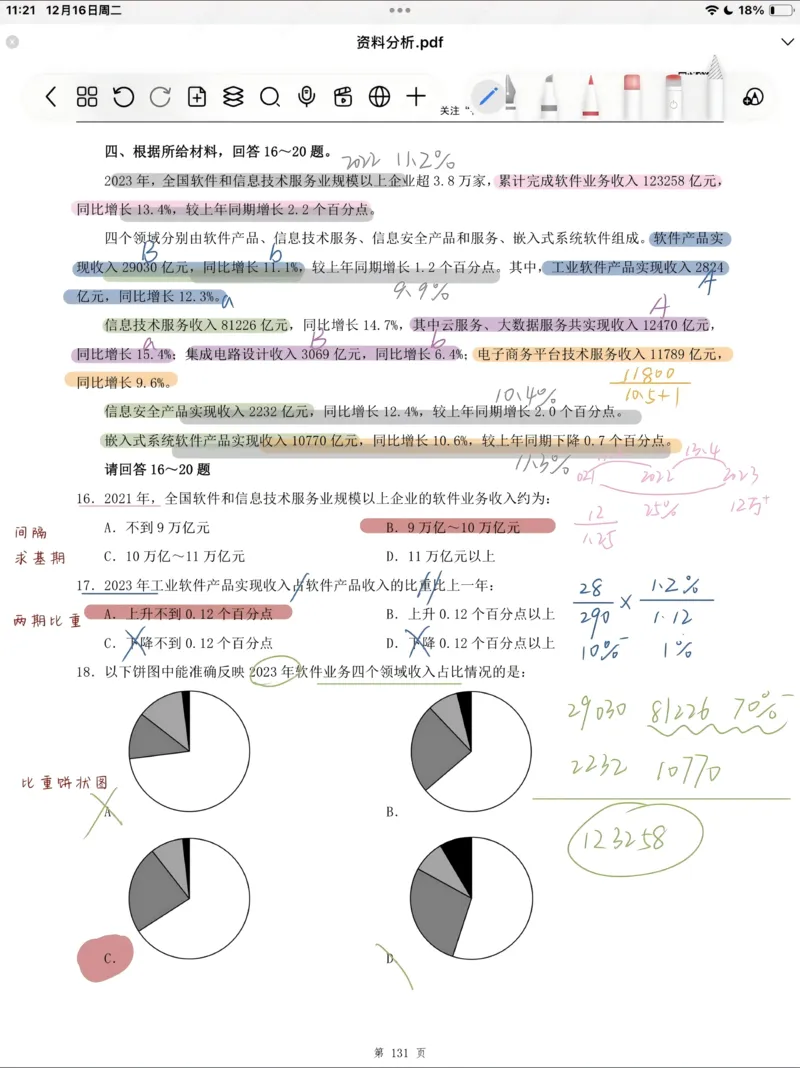 11:21 12月16日周二
18%
资料分析.pdf
关注 "
四、根据所给材料，回答 16～20 题。
2022 11.2%
2023 年，全国软件和信息技术服务业规模以上企业超 3.8 万家，累计完成软件业务收入 123258 亿元，
同比增长 13.4%，较上年同期增长 2.2 个百分点。
四个领域分别由软件产品、信息技术服务、信息安全产品和服务、嵌入式系统软件组成。软件产品实
B b
现收入 29030 亿元，同比增长 11.1%，较上年同期增长 1.2 个百分点。其中，工业软件产品实现收入 2824
9.9% A
亿元，同比增长 12.3%。a
A
信息技术服务收入 81226 亿元，同比增长 14.7%，其中云服务、大数据服务共实现收入 12470 亿元，
a B b
同比增长 15.4%；集成电路设计收入 3069 亿元，同比增长 6.4%；电子商务平台技术服务收入 11789 亿元，
11800
同比增长 9.6%。
10.4% 10.5+1
信息安全产品实现收入 2232 亿元，同比增长 12.4%，较上年同期增长 2.0 个百分点。
嵌入式系统软件产品实现收入 10770 亿元，同比增长 10.6%，较上年同期下降 0.7 个百分点。
11.3% 13.4
请回答 16～20 题
021 2022 2023
16. 2021 年，全国软件和信息技术服务业规模以上企业的软件业务收入约为：
25% 12万+
间隔
A. 不到 9 万亿元 B. 9 万亿～10 万亿元
12
1.25
求基期
C. 10 万亿～11 万亿元 D. 11 万亿元以上
17. 2023 年工业软件产品实现收入占软件产品收入的比重比上一年：
28 × 1.2%
290 1.12
两期比重
A. 上升不到 0.12 个百分点 B. 上升 0.12 个百分点以上
C. 下降不到 0.12 个百分点 D. 下降 0.12 个百分点以上
10%- 1%
18. 以下饼图中能准确反映 2023 年软件业务四个领域收入占比情况的是：
29030 81226 70%-
2232 10770
比重饼状图
A B.
123258
C. D
第 131 页